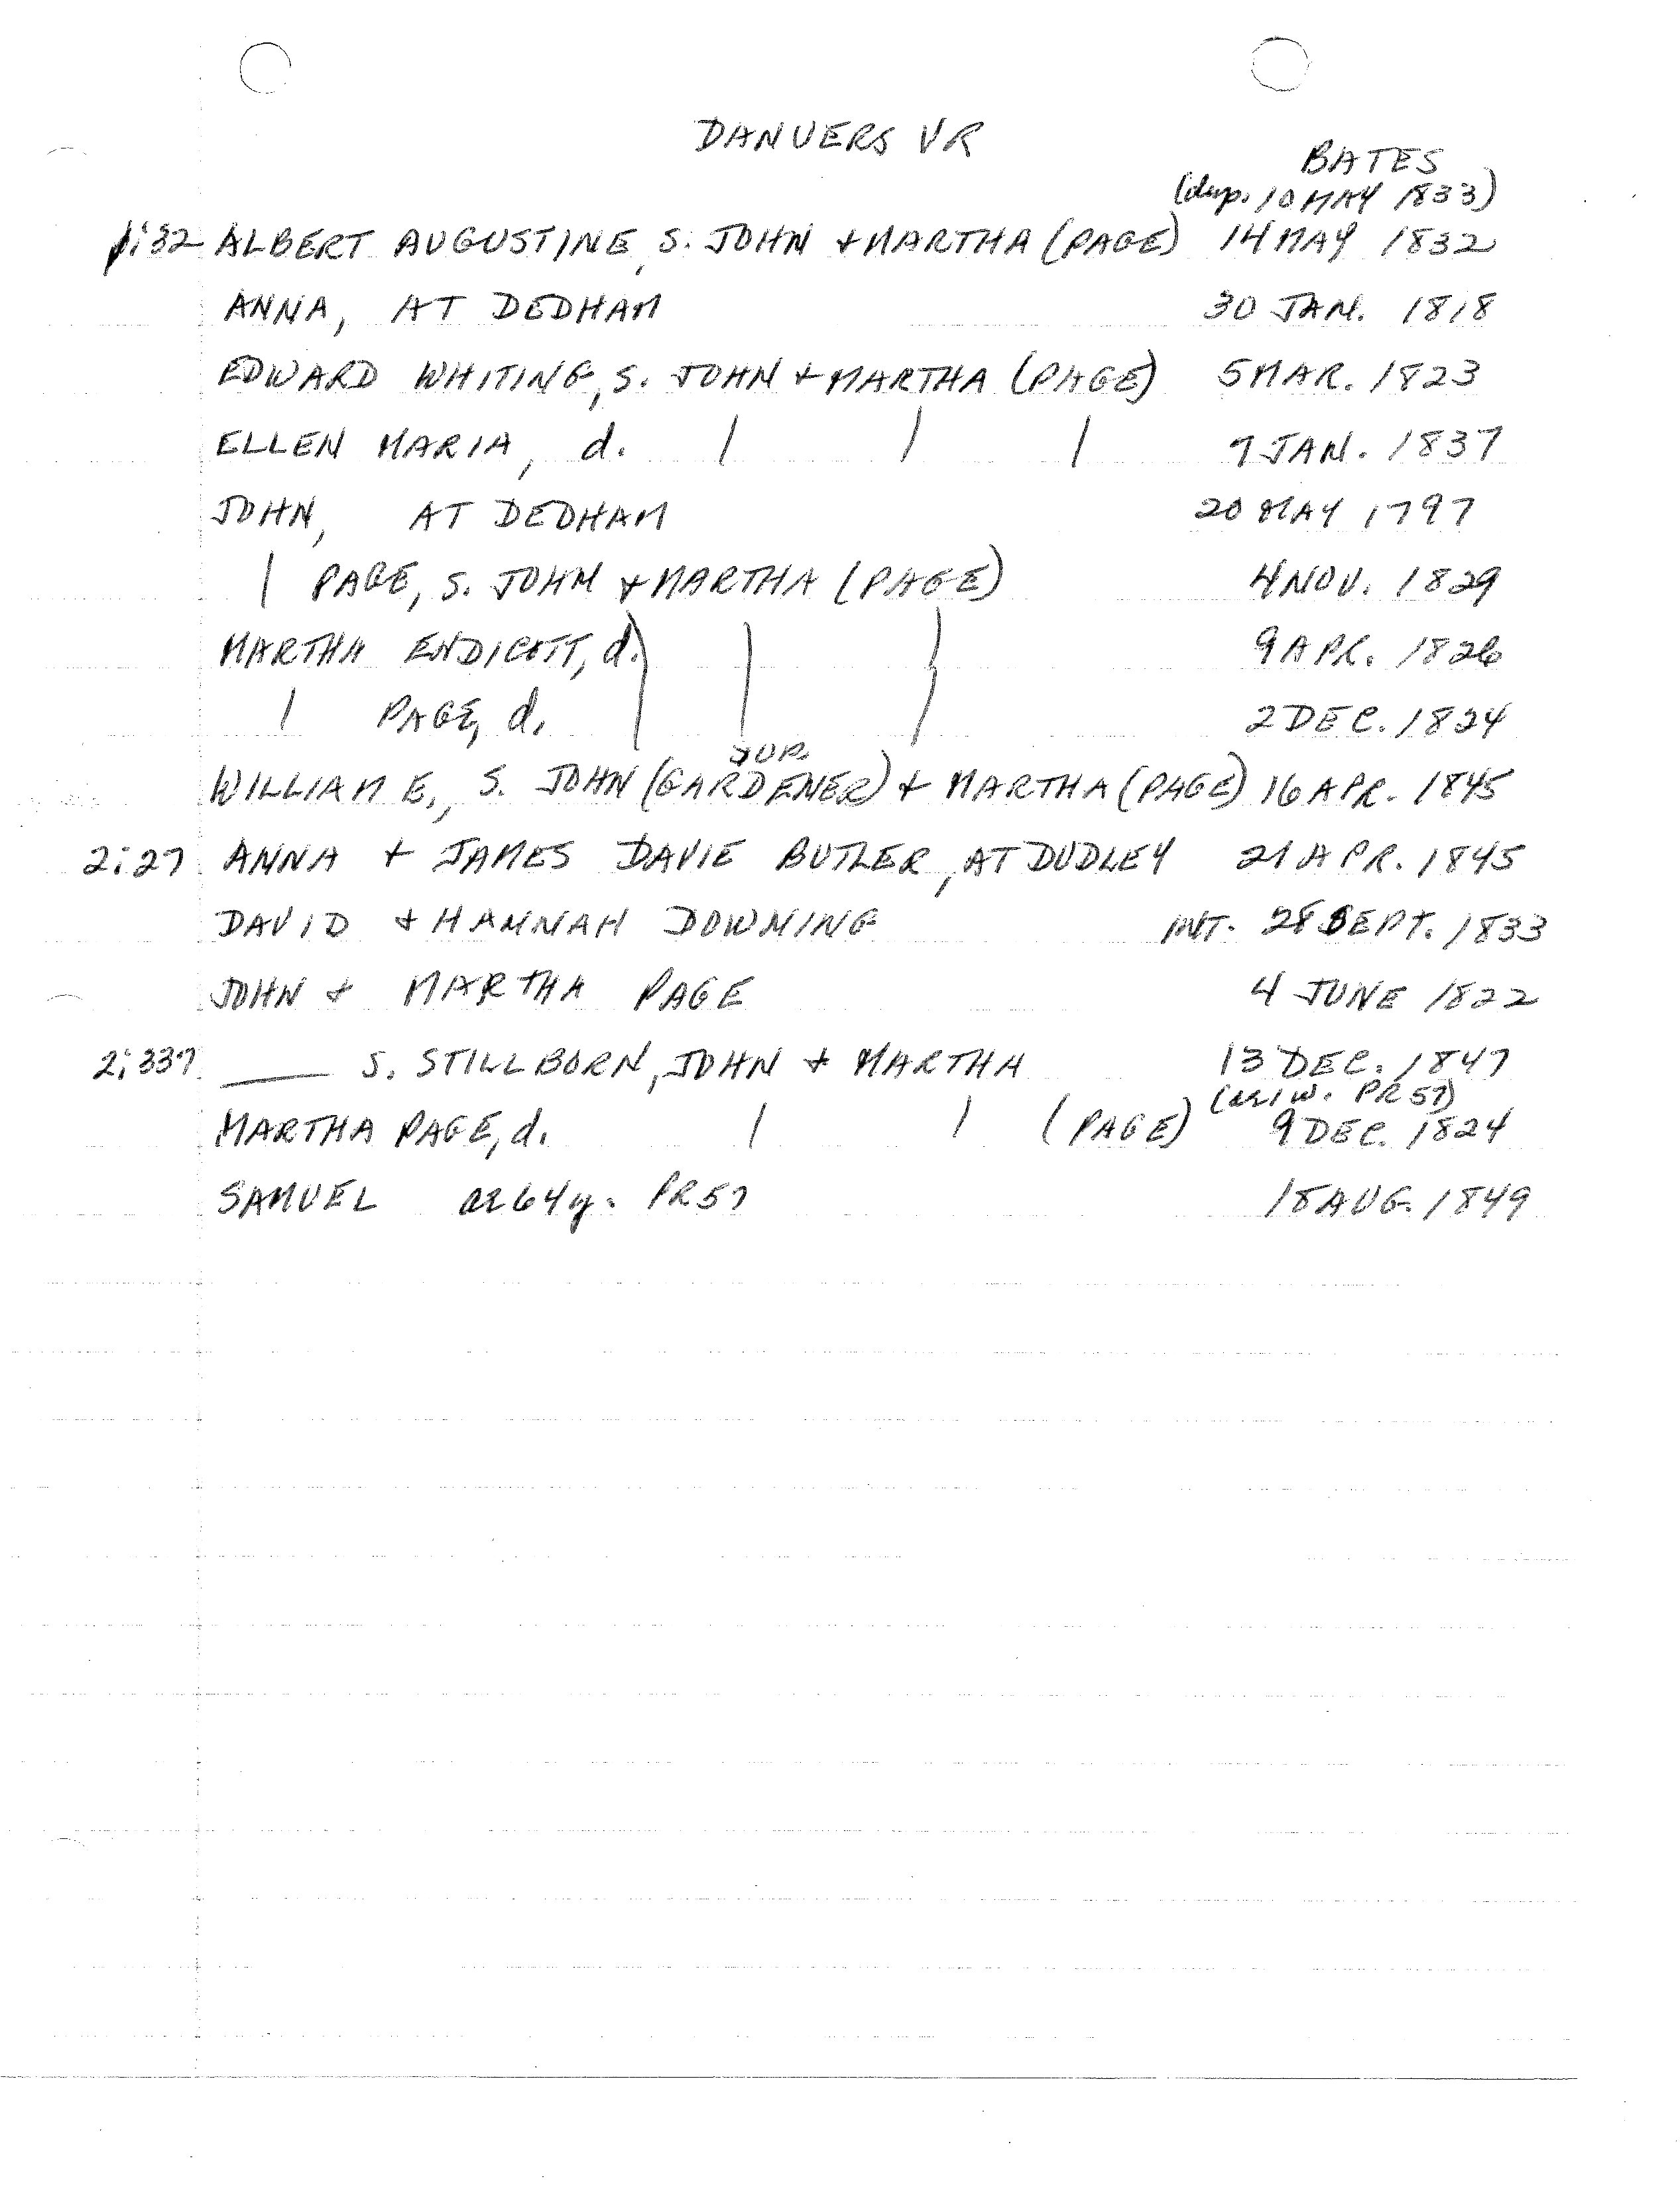 DANVERS VR
BATES
(dup. 10 MAY 1833)
1:32 ALBERT AUGUSTINE, S. JOHN + MARTHA (PAGE) 14 MAY 1832
ANNA, AT DEDHAM 30 JAN. 1818
EDWARD WHITING, S. JOHN + MARTHA (PAGE) 5 MAR. 1823
ELLEN MARIA, d. | | | 7 JAN. 1837
JOHN, AT DEDHAM 20 MAY 1797
| PAGE, S. JOHN + MARTHA (PAGE) 4 NOV. 1829
MARTHA ENDICOTT, d. | | | 9 APR. 1826
| PAGE, d. | | | 2 DEC. 1824
WILLIAM E., S. JOHN (GARDENER) + MARTHA (PAGE) 16 APR. 1845
2:27 ANNA + JAMES DAVIE BUTLER, AT DUDLEY 21 APR. 1845
DAVID + HANNAH DOWNING INT. 28 SEPT. 1833
JOHN + MARTHA PAGE 4 JUNE 1822
2:337 ___ S. STILLBORN, JOHN + MARTHA 13 DEC. 1847
(ae 1w. PR57)
MARTHA PAGE, d. | | (PAGE) 9 DEC. 1824
SAMUEL ae 64y. PR57 18 AUG. 1849